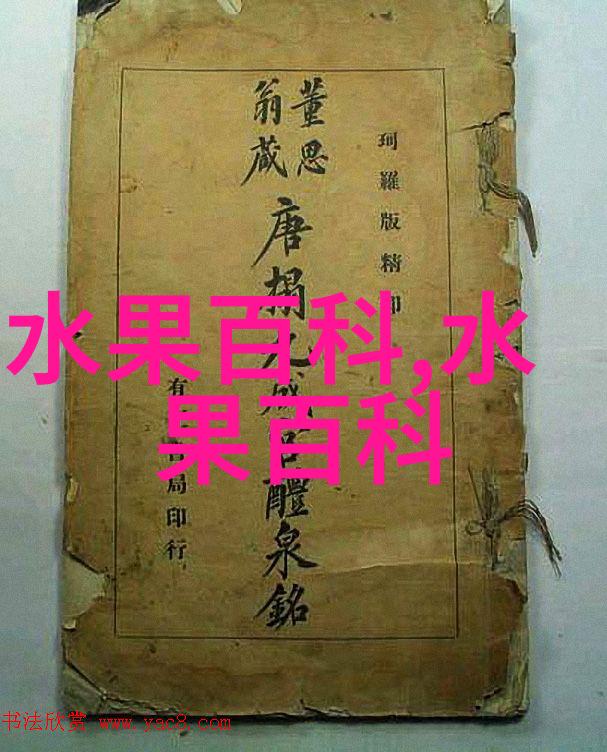 珂羅版精印
董思
翁蔵
唐搨九成宮醴泉銘
有書局印行
水果百科,水
果百科
书法欣赏 www.yac8.com